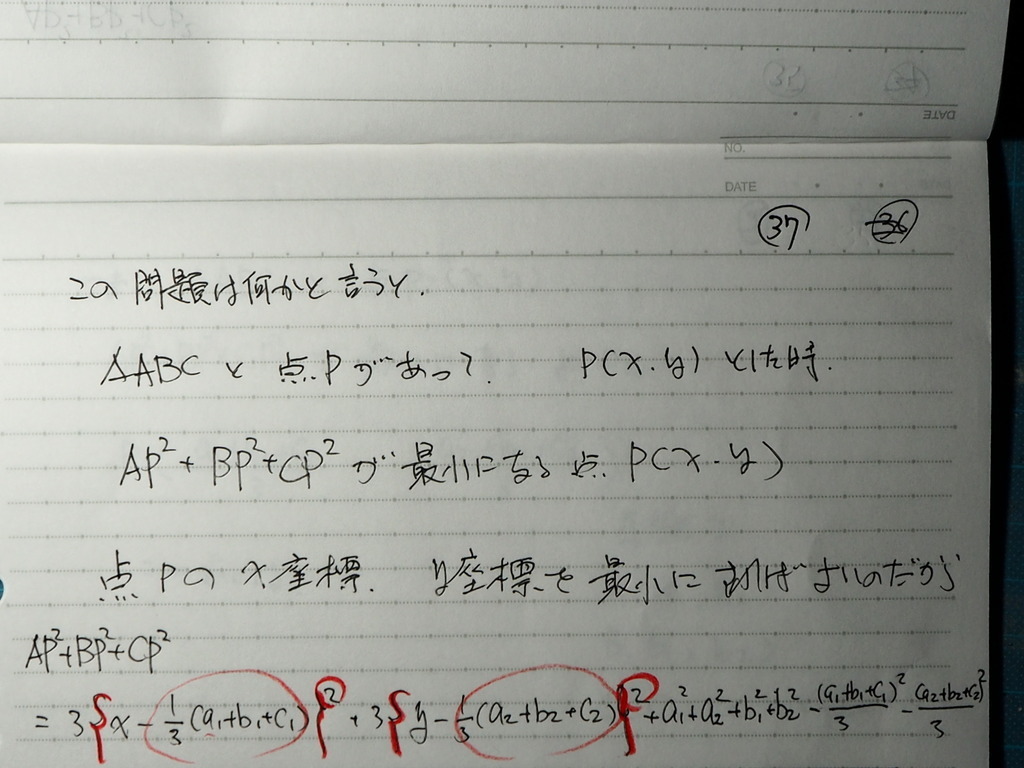 NO.
DATE
37 36
この問題は何かと言うと.
△ABCと点Pがあって. P(x.y)とした時.
AP²+BP²+CP²が最小になる点P(x.y)
点Pのx座標. y座標を最小にすればよいのだから
AP²+BP²+CP²
= 3{x-1/3(a₁+b₁+c₁)}² + 3{y-1/3(a₂+b₂+c₂)}²+a₁²+a₂²+b₁²+b₂²-(a₁+b₁+c₁)²/3-(a₂+b₂+c₂)²/3